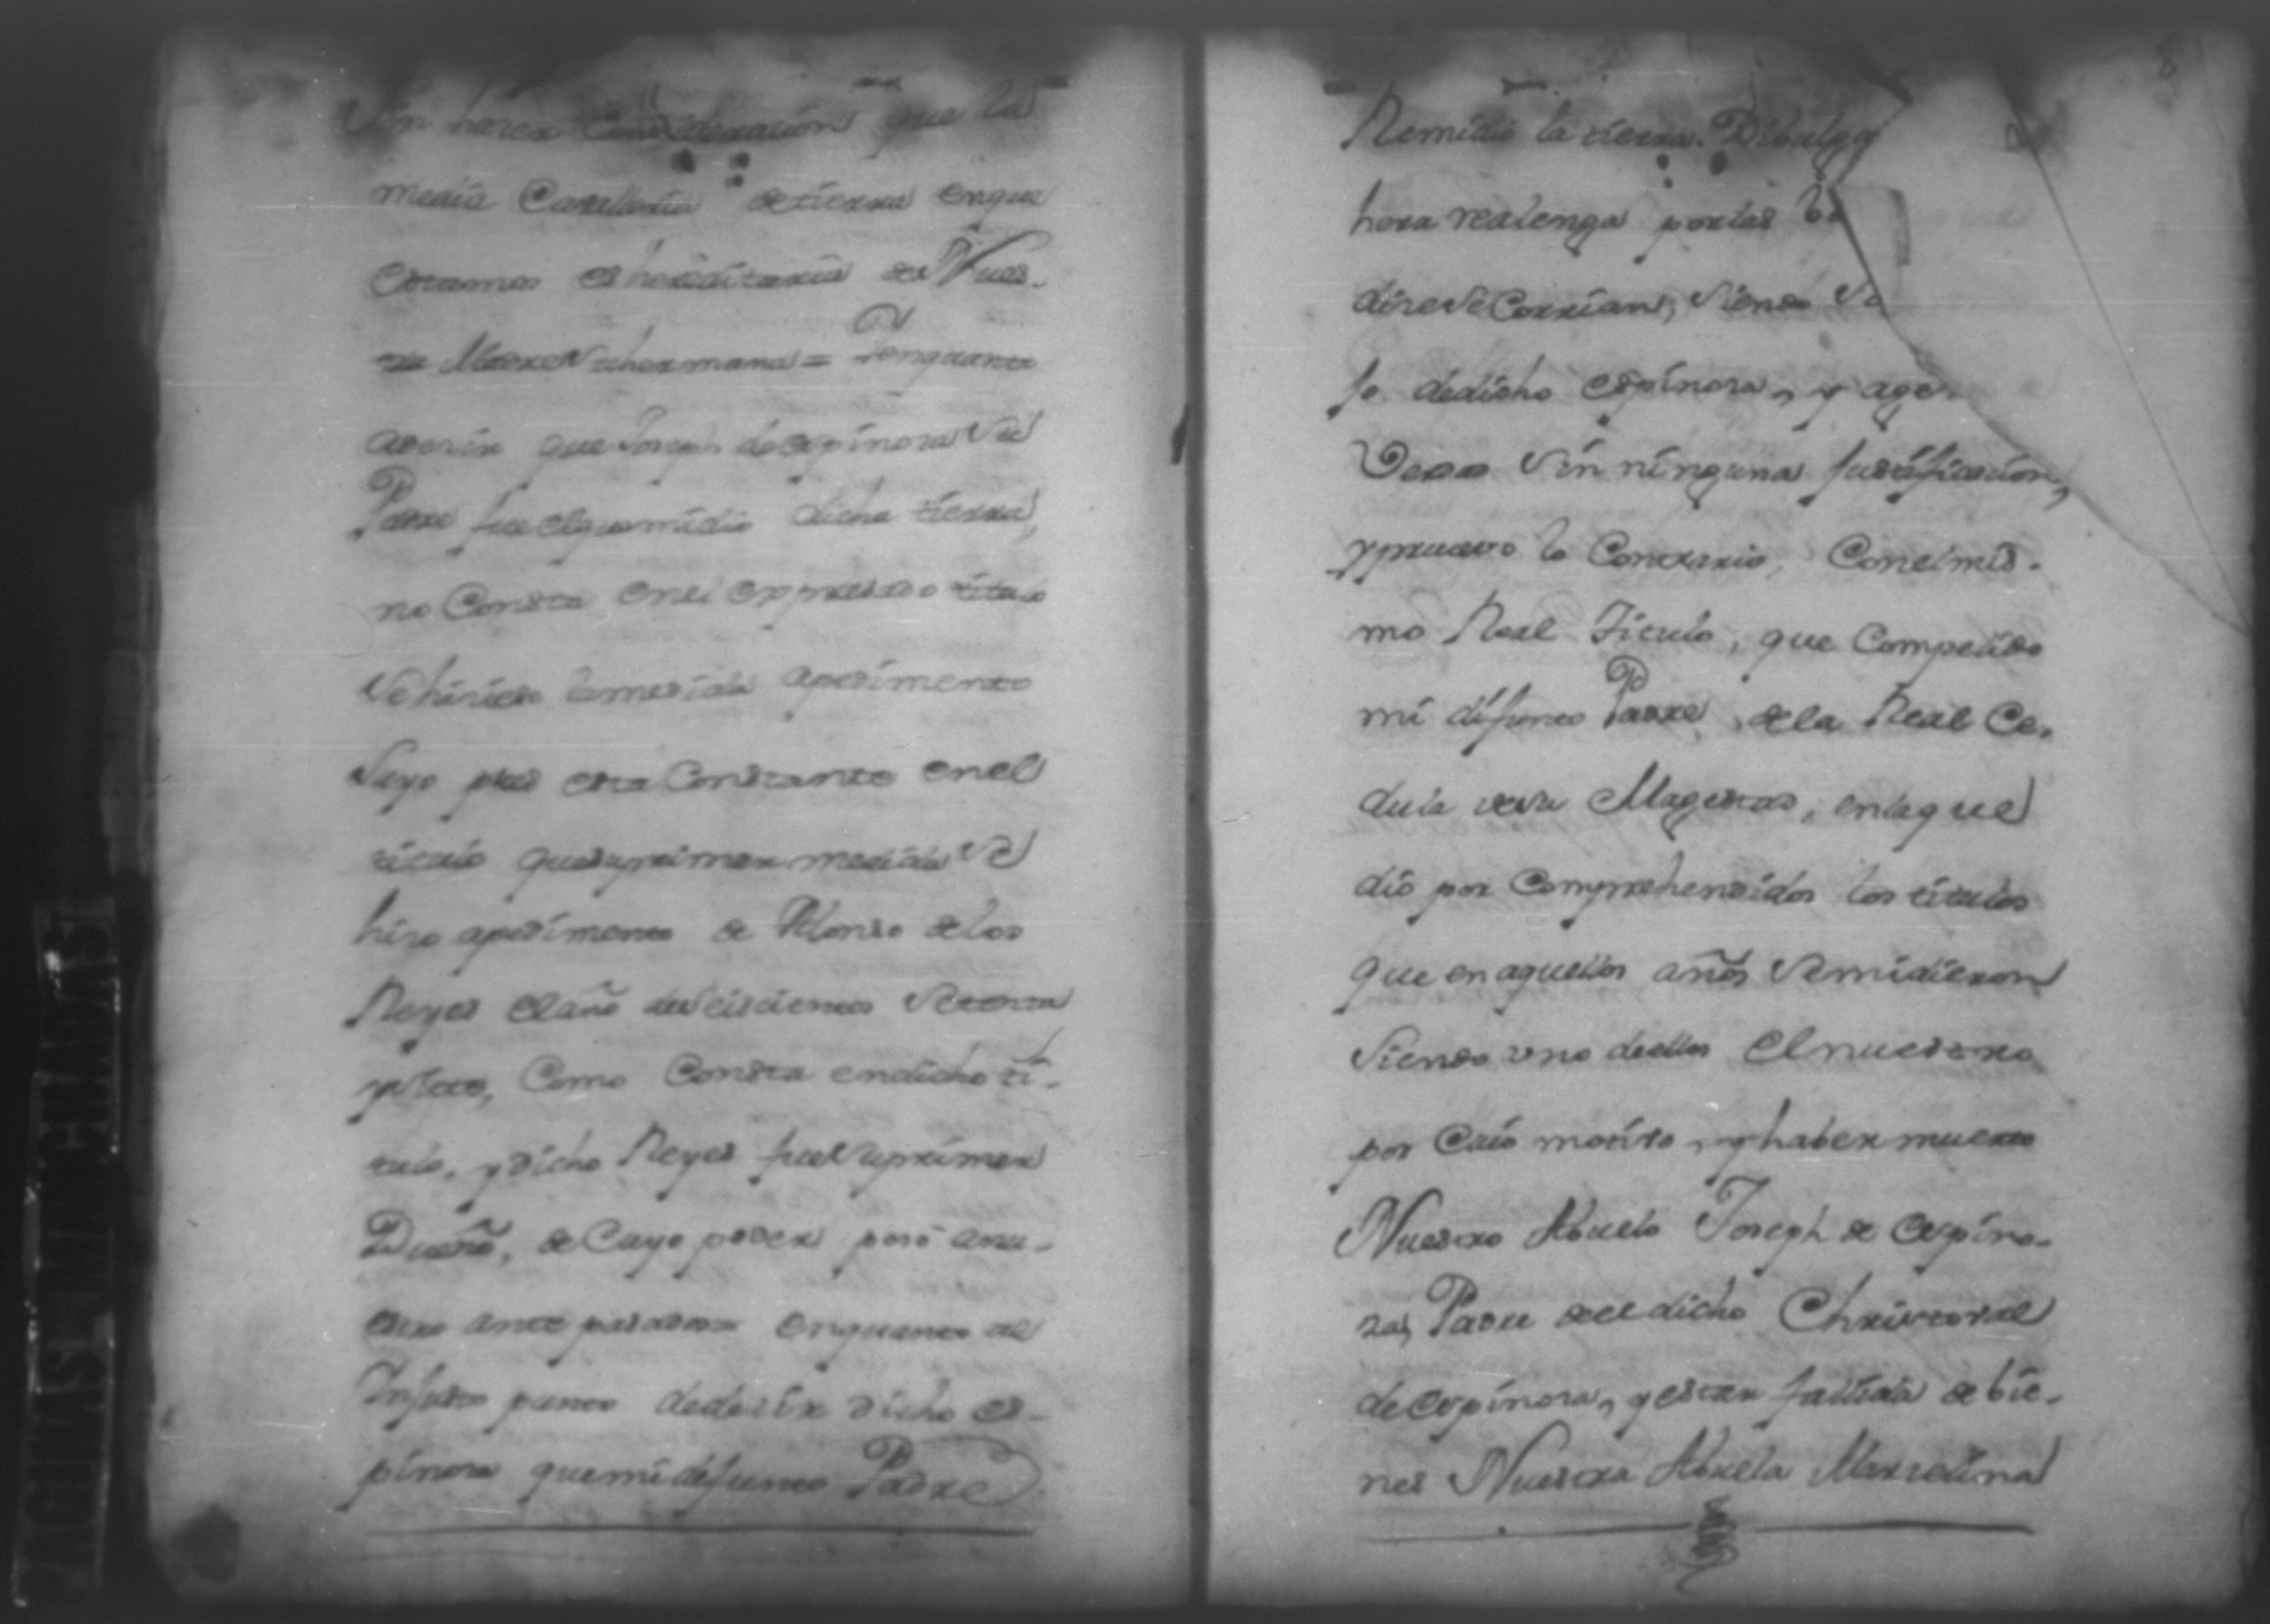 Sin haser Consideracion que la
media Cavalleria de tierra enque
estamos es hereditaria de Nues-
tra Madre hermana = Ienquanto
adesir que Joseph de espinosa Su
Padre fue elquemidio dicha tierra,
no Consta enel expresado titulo
Sehiciese lamedida apedimento
Suyo pues esta Constante enel
titulo quesuprimer medida Se
hizo apedimento de Alonso delos
Reyes elaño deSeiscientos Setenta
ySiete, Como Consta endicho ti-
tulo, ydicho Reyes fueSuprimer
Dueño, de Cuyo poder pasó anu-
estro ante pasados enquanto al
Injusto punto dedesir dicho es-
pinosa quemidefunto Padre
8
Remidio la tierra
hora realenga porlas
direSeCorrian, Siendo
so dedicho espinosa, y age-
Sin ninguna justificacion,
ypruevo lo Contrario, Conelmis-
mo Real Titulo, que Compelido
mi difunto Padre, dela Real Ce-
dula desu Magestad, enlaque
dio por Comprehendidos los titulos
que enaquellos años Semidieron
Siendo uno deellos elnuestro
por Cuio motivo, yhaber muerto
Nuestro Abuelo Joseph de espino-
za, Padre deel dicho Christoval
deespinosa, yestar fallida de bie-
nes Nuestra Abuela Marzelina